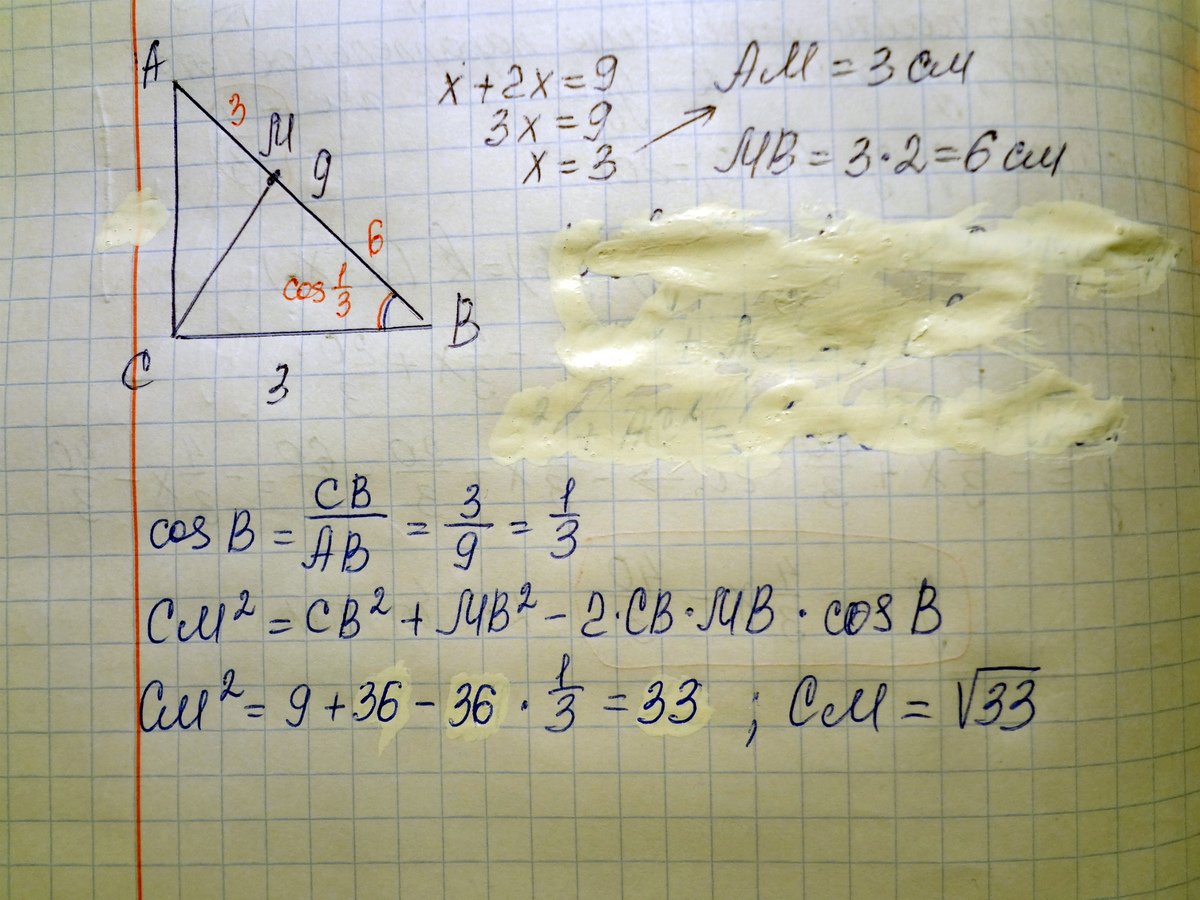 A
3
M
9
6
cos 1/3
B
C
3
x + 2x = 9
3x = 9
x = 3
AM = 3 см
MB = 3·2 = 6 см
cos B = CB/AB = 3/9 = 1/3
CM² = CB² + MB² - 2·CB·MB·cos B
CM² = 9 + 36 - 36 · 1/3 = 33 ; CM = √33